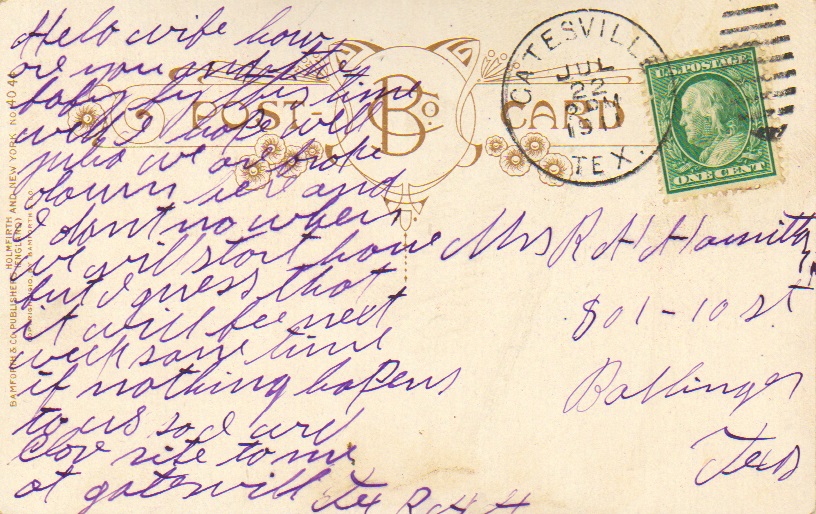 Helo wife how
are you and the
baby by this time
well I hope well
julia we ar broke
down here and
I dont no when
we will start home
but I guess that
it will be next
week some time
if nothing hapens
to us so I will
Close rite to me
at gatesvill Tex R H H
POST-CARD
B Co
GATESVILLE
JUL
22
PM
TEX.
U.S. POSTAGE
ONE CENT
Mrs R H Hamilton
801-10 st
Ballinger
Texas
BAMFORTH & CO. PUBLISHERS HOLMFIRTH AND NEW YORK NO. 404
(ENGLAND)
COPYRIGHT 1910 BY BAMFORTH & CO.